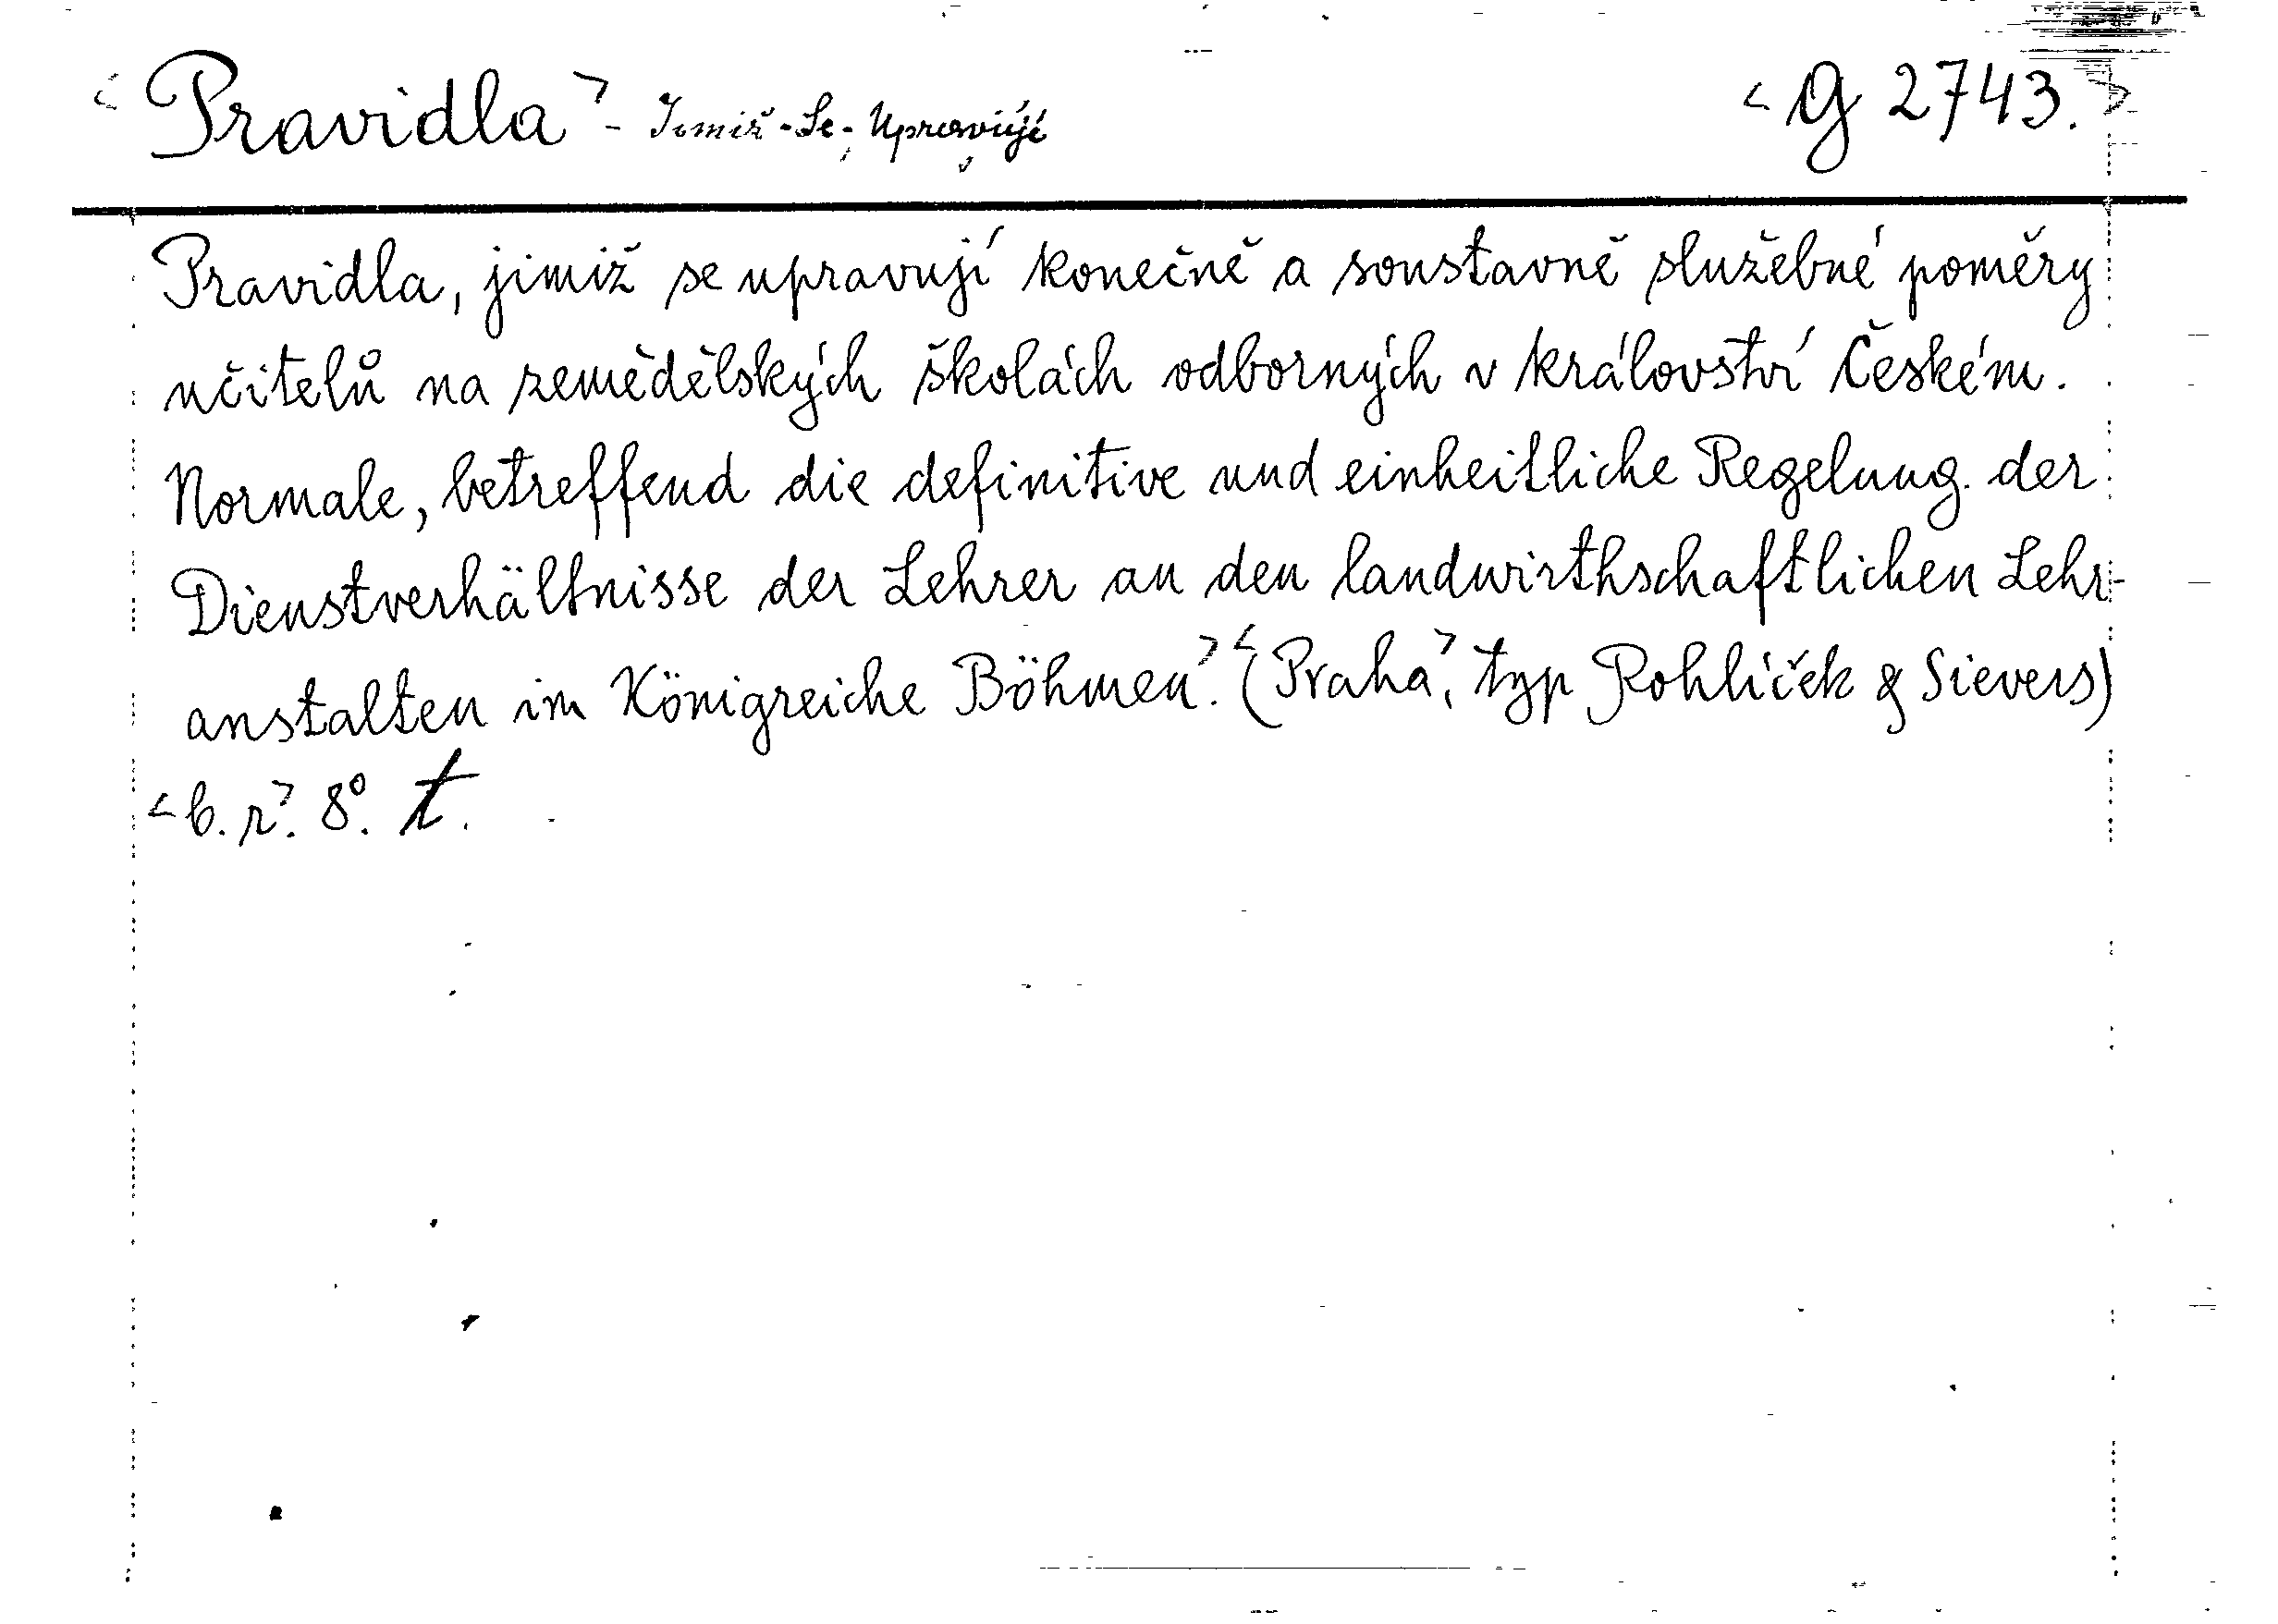 <Pravidla> - Jimiž - Se - Upravují
<G 2743.>
Pravidla, jimiž se upravují konečně a soustavně služebné poměry
učitelů na zemědělských školách odborných v království Českém.
Normale, betreffend die definitive und einheitliche Regelung der
Dienstverhältnisse der Lehrer an den landwirthschaftlichen Lehr-
anstalten im Königreiche Böhmen>. <(Praha>, typ Rohlíček & Sievers)
<b. r>. 8°. t.